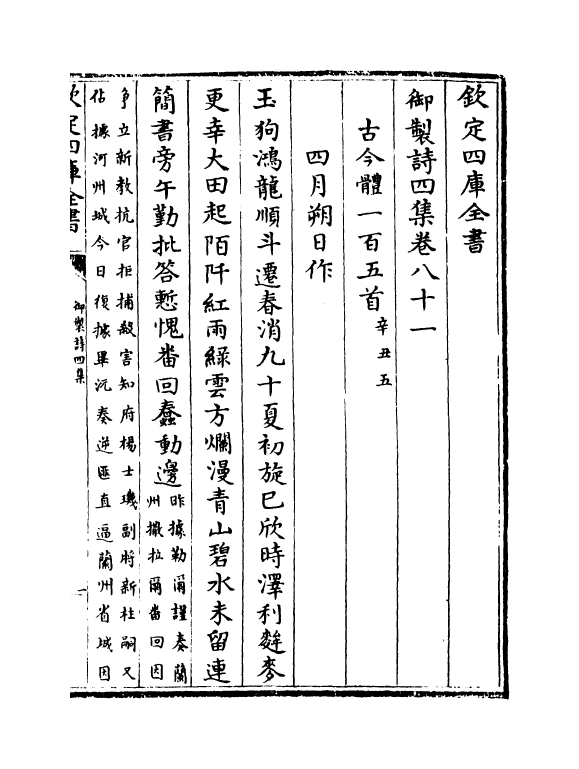 欽定四庫全書
御製詩四集卷八十一
古今體一百五首辛丑五
四月朔日作
玉狗鴻龍順斗遷春消九十夏初旋已欣時澤利麰麥
更幸大田起陌阡紅雨綠雲方爛漫青山碧水未留連
簡書旁午勤批答慙愧畨回蠢動邊昨據勒爾謹奏蘭
州撒拉爾畨回因
爭立新教抗官拒捕殺害知府楊士璣副將新柱嗣又
佔據河州城今日復據畢沅奏逆匪直逼蘭州省城因
欽定四庫全書
御製詩四集
一